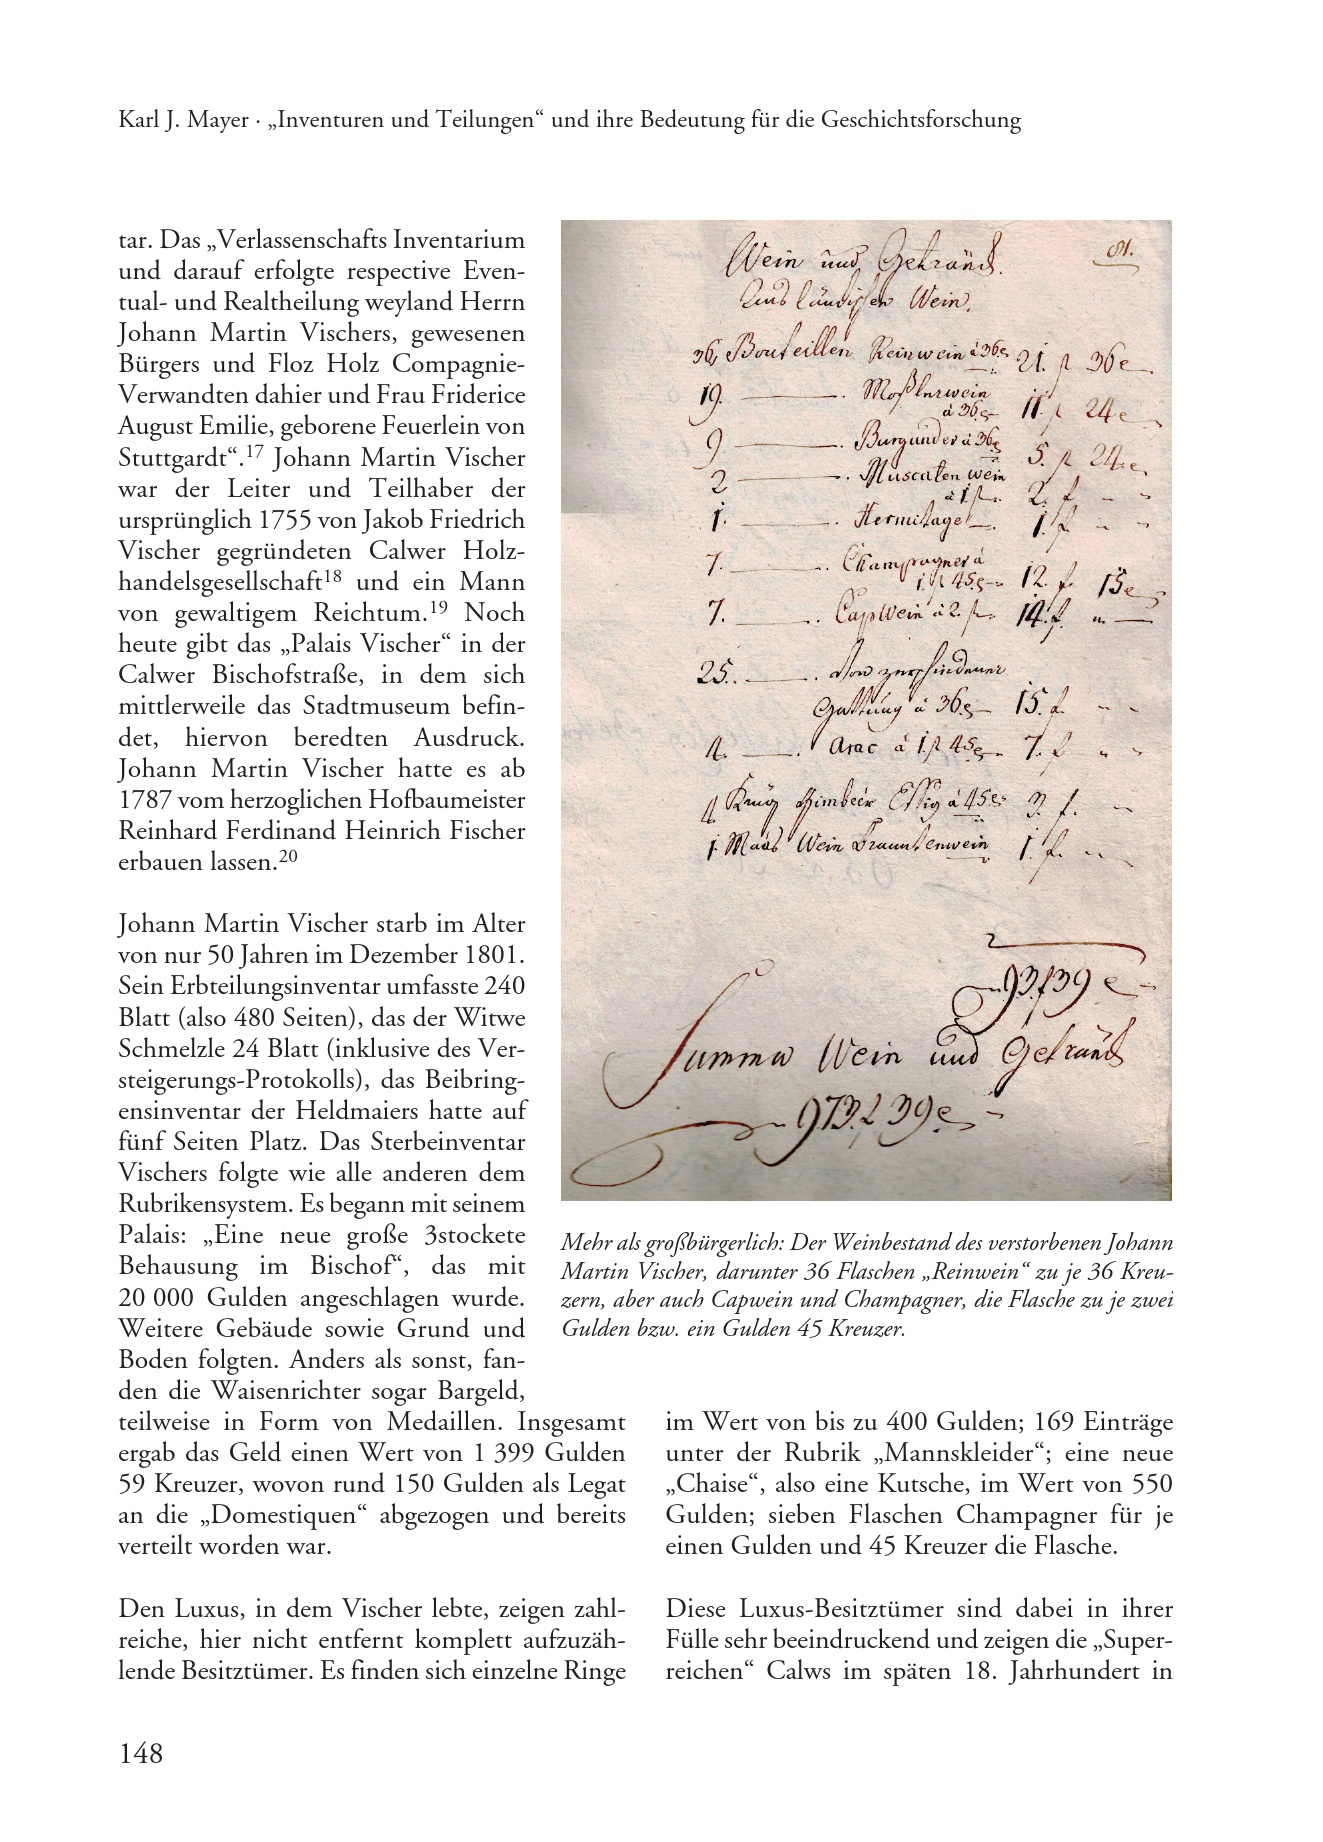 Karl J. Mayer · „Inventuren und Teilungen“ und ihre Bedeutung für die Geschichtsforschung
tar. Das „Verlassenschafts Inventarium
und darauf erfolgte respective Even-
tual- und Realtheilung weyland Herrn
Johann Martin Vischers, gewesenen
Bürgers und Floz Holz Compagnie-
Verwandten dahier und Frau Friderice
August Emilie, geborene Feuerlein von
Stuttgardt“.17 Johann Martin Vischer
war der Leiter und Teilhaber der
ursprünglich 1755 von Jakob Friedrich
Vischer gegründeten Calwer Holz-
handelsgesellschaft18 und ein Mann
von gewaltigem Reichtum.19 Noch
heute gibt das „Palais Vischer“ in der
Calwer Bischofstraße, in dem sich
mittlerweile das Stadtmuseum befin-
det, hiervon beredten Ausdruck.
Johann Martin Vischer hatte es ab
1787 vom herzoglichen Hofbaumeister
Reinhard Ferdinand Heinrich Fischer
erbauen lassen.20
Johann Martin Vischer starb im Alter
von nur 50 Jahren im Dezember 1801.
Sein Erbteilungsinventar umfasste 240
Blatt (also 480 Seiten), das der Witwe
Schmelzle 24 Blatt (inklusive des Ver-
steigerungs-Protokolls), das Beibring-
ensinventar der Heldmaiers hatte auf
fünf Seiten Platz. Das Sterbeinventar
Vischers folgte wie alle anderen dem
Rubrikensystem. Es begann mit seinem
Palais: „Eine neue große 3stockete
Behausung im Bischof“, das mit
20 000 Gulden angeschlagen wurde.
Weitere Gebäude sowie Grund und
Boden folgten. Anders als sonst, fan-
den die Waisenrichter sogar Bargeld,
teilweise in Form von Medaillen. Insgesamt
ergab das Geld einen Wert von 1 399 Gulden
59 Kreuzer, wovon rund 150 Gulden als Legat
an die „Domestiquen“ abgezogen und bereits
verteilt worden war.
Den Luxus, in dem Vischer lebte, zeigen zahl-
reiche, hier nicht entfernt komplett aufzuzäh-
lende Besitztümer. Es finden sich einzelne Ringe
81.
Wein und Getränck.
Ausländischen Wein.
36 Bouteillen Reinwein à 36 21. f 36
19. Moßlerwein
à 36 11. f 24
9 Burgunder à 36 5. f 24
2 Muscaten wein
à 1 f 2. f
1. Hermitage 1. f
7. Champagner à
1. f 45 12. f. 15
7. CapWein à 2. f 14. f.
25. Von verschiedener
Gattung à 36 15. f
4. Arac à 1. f 45 7. f
4 Krüg Himbeer Essig à 45 3. f.
1. Maas Wein Branntenwein 1. f.
93. f 39
Summa Wein und Getränck
973. f 39
Mehr als großbürgerlich: Der Weinbestand des verstorbenen Johann
Martin Vischer, darunter 36 Flaschen „Reinwein“ zu je 36 Kreu-
zern, aber auch Capwein und Champagner, die Flasche zu je zwei
Gulden bzw. ein Gulden 45 Kreuzer.
im Wert von bis zu 400 Gulden; 169 Einträge
unter der Rubrik „Mannskleider“; eine neue
„Chaise“, also eine Kutsche, im Wert von 550
Gulden; sieben Flaschen Champagner für je
einen Gulden und 45 Kreuzer die Flasche.
Diese Luxus-Besitztümer sind dabei in ihrer
Fülle sehr beeindruckend und zeigen die „Super-
reichen“ Calws im späten 18. Jahrhundert in
148